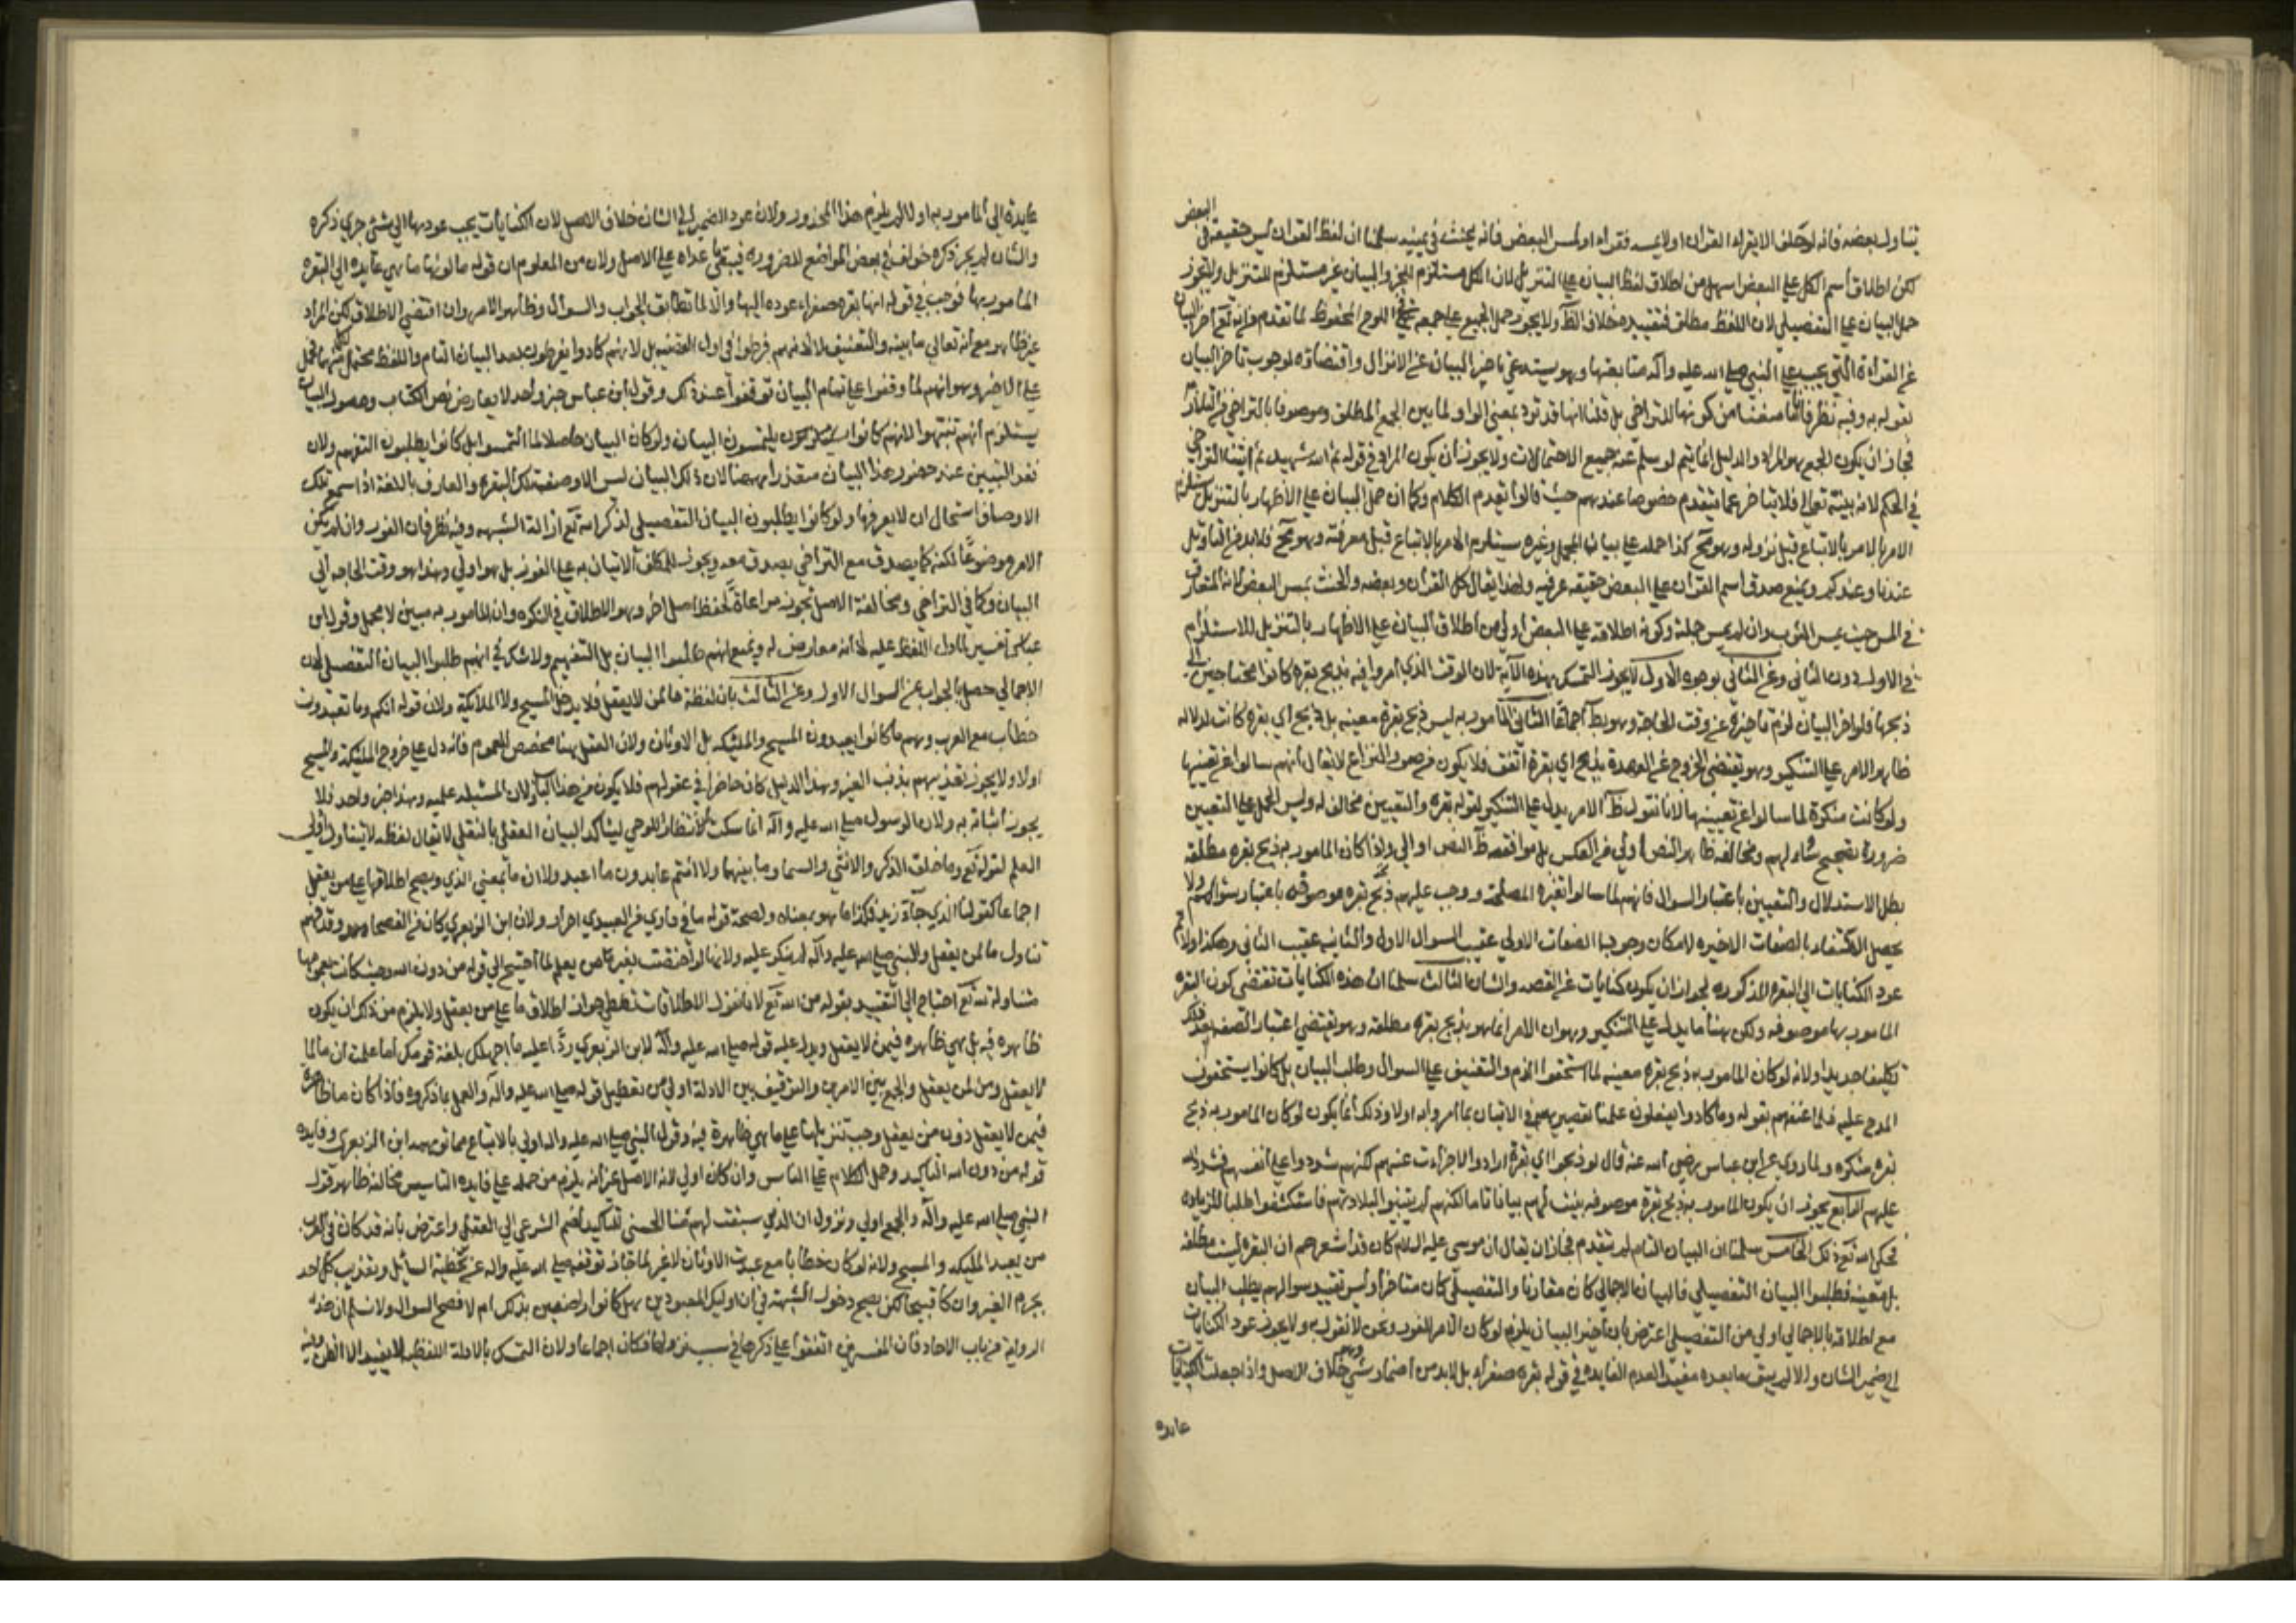 البعض
يتناول بعضه فانه لو حلف الا يقراء القران او لا يمسه فقراء او لمس البعض فانه يحنث في يمينه سلمنا ان لفظ القران ليس حقيقة في
لكن اطلاق اسم الكل على البعض اسهل من اطلاق لفظ البيان على التنزيل لان الكل مستلزم للجزو والبيان غير مستلزم للتنزيل ولا يجوز
حمل البيان على التفصيلي لان اللفظ مطلق فتقييده خلاف الظ ولا يجوز حمل الجمع على جمعه في اللوح المحفوظ لما تقدم فانه تع اخر البيان
عن القراءة التي يجب على النبي صلى الله عليه واله متابعتها وهو يستدعي تاخير البيان عن الانزال واقتضاؤه لوجوب تاخر البيان
نقول به وفيه نظر فانا منعنا من كونها للتراخي بل قلنا انها قد ترد بمعنى الواو لما بين الجمع المطلق وموصوفا بالتراخي من التلازم
فجاز ان يكون الجمع هو المراد والدليل انما يتم لو سلم عن جميع الاحتمالات ولا يجوز ان يكون المراد في قوله ثم الله شهيد ثم اتينا التراخي
في الحكم لانه بينه تعالى فلا يتاخر عما يتقدم خصوصا عندهم حيث قالوا بقدم الكلام وكما ان حمل البيان على الاظهار بالتنزيل يستلزم
الامر بالامر بالاتباع قبل نزوله وهو مح كذا حمله على بيان المجمل وغيره يستلزم الامر بالاتباع قبل معرفته وهو مح فلا بد من التاويل
عندنا وعندكم ويمنع صدق اسم القران على البعض حقيقه عرفيه ولهذا يقال كل القران وبعضه والحنث بمس البعض لانه المتعارف
في المس حيث يمس الثوب وان لم يمس جملته وكون اطلاقه على البعض اولى من اطلاق البيان على الاظهار بالتنزيل للاستلزام
في الاول دون الثاني وعن الثاني بوجوه الاول لا يجوز التمسك بهذه الآية لان الوقت الذي امروا فيه بذبح بقره كانوا محتاجين الى
ذبحها فلو اخر البيان لزم تاخيره عن وقت الحاجة وهو بط اجماعا الثاني المامور به ليس ذبح بقرة معينه بل ذبح اي بقره كانت لدلاله
ظاهر الامر على التنكير وهو يقتضي الخروج عن العهدة بذبح اي بقرة اتفق فلا يكون من صور النزاع لا يقال انهم سالوا عن تعيينها
ولو كانت منكرة لما سالوا عن تعيينها لانا نقول ظ الامر يدل على التنكير لقوله بقره والتعيين مخالف له وليس الحمل على التعيين
ضرورة تصحيح سؤالهم ومخالفه ظاهر النص اولى من العكس بل موافقه ظ النص اولى واذا كان المامور به ذبح بقره مطلقه
بطل الاستدلال والتعيين باعتبار السوال فانهم لما سالوا تغيره المصلحة ووجب عليهم ذبح بقره موصوفه باعتبار سؤالهم ولا
يحصل الاكتفاء بالصفات الاخيره لامكان وجوب الصفات الاولى عقيب السوال الاول والثانيه عقيب الثاني وهكذا ولا يجب
عود الكنايات الى البقره المذكوره لجواز ان يكون كنايات عن القصه والشان الثالث سلمنا ان هذه الكنايات تقتضي كون البقره
المامور بها موصوفه ولكن هنا ما يدل على التنكير وهو ان الامر انما هو بذبح بقره مطلقه وهو يقتضي اعتبار الصفه بعد ذلك
تكليفا جديدا ولانه لو كان المامور به ذبح بقره معينه لما استحقوا الذم والتعنيف على السوال وطلب البيان بل كانوا يستحقون
المدح عليه فلما عنفهم بقوله وما كادوا يفعلون علمنا تقصيرهم في الاتيان بما امروا به اولا وذلك انما يكون لو كان المامور به ذبح
بقره منكره ولما روي عن ابن عباس رضي الله عنه قال لو ذبحوا اي بقرة ارادوا لاجزاءت عنهم لكنهم شددوا على انفسهم فشدد الله
عليهم الرابع يجوز ان يكون المامور به ذبح بقرة موصوفه بينت لهم بيانا تاما لكنهم لم يتبينوا لبلادتهم فاستكشفوا طلبا للزياده
فحكى الله تع ذلك الخامس سلمنا ان البيان التام لم يتقدم فجاز ان يقال ان موسى عليه السلام كان قد اشعرهم ان البقره ليست مطلقه
بل معينه فطلبوا البيان التفصيلي فالبيان الاجمالي كان مقارنا والتفصيلي كان متاخرا وليس تقييد سوالهم بطلب البيان
مع اطلاقه بالاجمالي اولى من التفصيلي اعترض بان تاخير البيان يلزم لو كان الامر للفور ونحن لا نقول به ولا يجوز عود الكنايات
الى ضمير الشان والا لم يبق ما بعده مفيدا لعدم الفايده في قوله بقره صفراء بل لا بد من اضمار شي وهو خلاف الاصل واذا جعلت الكنايات
عايده
عايدة الى المامور به اولا لم يلزم هذا المحذور ولان عود الضمير الى الشان خلاف الاصل لان الكنايات يجب عودها الى شئ جرى ذكره
والشان لم يجر ذكره خولف في بعض المواضع للضروره فيبقى ما عداه على الاصل ولان من المعلوم ان قوله ما لونها ما هي عايده الى البقره
المامور بها فوجب في قوله انها بقره صفراء عوده اليها والا لما تطابق الجواب والسوال وظاهر الامر وان اقتضى الاطلاق لكن المراد
غير ظاهره مع انه تعالى ما بينه والتعنيف لا لانهم فرطوا في اول القضيه بل لانهم كادوا يفرطون بعد البيان التام واللفظ محتمل لكل منهما فحمل
على الاخير وهو انهم لما وقفوا على تمام البيان توقفوا عند ذلك وقول ابن عباس خبر واحد لا يعارض نص الكتاب وحصول البيان
يستلزم انهم تنبهوا لانهم كانوا يلتمسون البيان ولو كان البيان حاصلا لما التمسوا بل كانوا يطلبون التفهيم ولان
فقد التبيين عند حضور هذا البيان متعذر ههنا لان ذلك البيان ليس الا وصف تلك البقره والعارف باللغة اذا سمع تلك
الاوصاف استحال ان لا يعرفها ولو كانوا يطلبون البيان التفصيلي لذكر الله تع ازالة الشبهه وفيه نظر فان الفور وان لم يكن
الامر موضوعا لكنه كما يصدق مع التراخي يصدق معه ويجوز للمكلف الاتيان به على الفور بل هو اولى وهذا هو وقت الحاجه الى
البيان وكما في التراخي ومخالفة الاصل تجوز مراعاة لحفظ اصل اخر وهو الاطلاق في النكره وان المامور به مبين لا مجمل وقول ابن
عباس تفسير لمدلول اللفظ عليه لا انه معارض له ونمنع انهم طلبوا البيان بل التفهيم ولا شك في انهم طلبوا البيان التفصيلي لان
الاجمالي حصل بالجواب عن السوال الاول وعن الثالث بان لفظة ما لمن لا يعقل فلا يدخل المسيح ولا الملائكة ولان قوله انكم وما تعبدون
خطاب مع العرب وهم ما كانوا يعبدون المسيح والملئيكه بل الاوثان ولان العقل ههنا مخصص للعموم فانه دل على خروج الملئكة والمسيح
اولا ولا يجوز تعذيبهم بذنب الغير وهذا الدليل كان حاضرا في عقولهم فلا يكون من هذا الباب ولان المسئله علميه وهذا خبر واحد فلا
يجوز اثباته به ولان الرسول صلى الله عليه واله انما سكت لانتظار الوحي ليتاكد البيان العقلي بالنقلي لا يقال لفظه ما يتناول اولي
العلم لقوله تع وما خلق الذكر والانثى والسما وما بنيها ولا انتم عابدون ما اعبد ولان ما بمعنى الذي ويصح اطلاقها على من يعقل
اجماعا كقولنا الذي جاء زيد فكذا ما هو بمعناه ولصحة قوله ما في داري من العبيدي احرار ولان ابن الزبعري كان من الفصحا وقد فهم
تناول ما لمن يعقل والنبي صلى الله عليه واله لم ينكر عليه ولانها لو اختصت بغير من يعلم لما احتيج الى قوله من دون الله وحيث كانت بعمومها
متناولة لله تع احتاج الى التقييد بقوله من الله تع لانا نقول الاطلاقات تعطي جواز اطلاق ما على من يعقل ولا يلزم من ذلك ان يكون
ظاهره فيه بل هي ظاهره فيمن لا يعقل ويدل عليه قوله صلى الله عليه واله لابن الزبعري ردا عليه ما اجهلك بلغة قومك اما علمت ان ما لما
لا يعقل ومن لمن يعقل والجمع بين الامرين والتوفيق بين الادلة اولى من تعطيل قوله صلى الله عليه واله والعمل بما ذكروه فاذا كان ما ظاهرة
فيمن لا يعقل دون من يعقل وجب تنزيلها على ما هي ظاهرة فيه وقول النبي صلى الله عليه واله اولى بالاتباع مما توهمه ابن الزبعري وفايده
قوله من دون الله التاكيد وحمل الكلام على التاسيس وان كان اولى لانه الاصل غير انه يلزم من حمله على فايده التاسيس مخالفة ظاهر قول
النبي صلى الله عليه واله والجمع اولى ونزول ان الذين سبقت لهم منا الحسنى لتاكيد بضم الشرعي الى العقلي واعترض بانه قد كان في العرب
من يعبد المليكه والمسيح ولانه لو كان خطابا مع عبدة الاوثان لا غير لما جاز توقفه صلى الله عليه واله عن تخطية السائل وتعذيب كل احد
بجرم الغير وان كان قبيحا لكن يصح دخول الشبهة في ان اوليك المعبودين هل كانوا راضين بذلك ام لا فصح السوال ولا نسلم ان هذه
الرواية من باب الاحاد فان المفسرين اتفقوا على ذكرها في سبب نزولها فكان اجماعا ولان التمسك بالادلة اللفظيه لا يفيد الا الظن